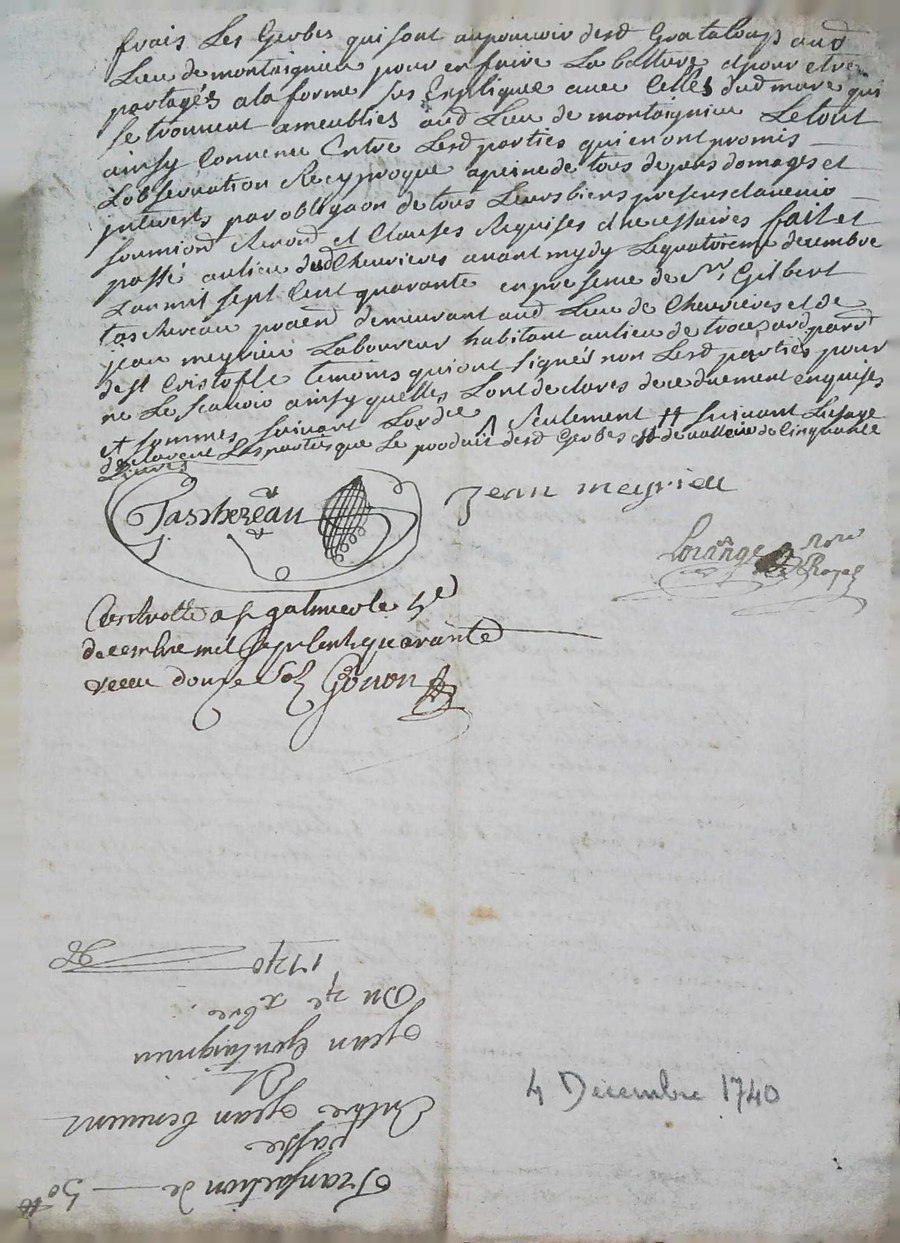 frais Les Gerbes qui sont aupouvoir desd Grataloup aud
Lieu de montaignieu pour en faire La batture et pour etre
partagés a la forme sus Expliquée avec Celles dud mare qui
se trouvent ameublies aud Lieu de montaignieu Le tout
ainsy Convenu Entre Lesd parties qui en ont promis
L'observation Recyproque apeine de tous depens domages et
jnterets par obligaon de tous Leurs biens presens et avenir
soumiond Renond et Clauses Requises et necessaires fait et
passé au lieu dud Chevrieres avant mydy Le quatorieme decembre
Lan mil sept Cent quarante en presence de Sr. Gilbert
taschereau praend demeurant aud Lieu de Chevrieres et de
jean meyrieu Laboureur habitant au lieu de parr
de st Cristofle temoins qui ont signés non Lesd parties pour
ne Le scavoir ainsy quelles Lont declarés de ce duement enquises
et sommés suivant Lordce seulement # suivant Lusage
declarent Les parties que Le produit desd Gerbes est de valleur de Cinquante
Livres
Taschereau
Jean meyrieu
Lorange nore Royal
Controllé a st galmier le
decembre mil sept cent quarante
receu douze sols Gonon
4 Decembre 1740
Transaction de 50 #
passé
Entre Jean
Et
Jean
Du xbre
1740